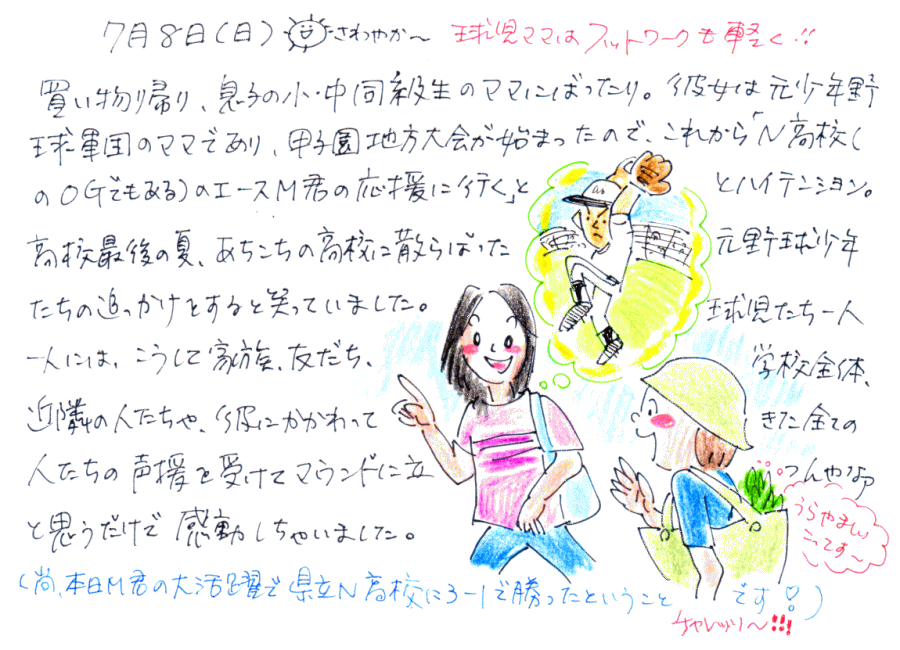 7月8日(日) さわやか〜 球児ママはフットワークも軽く!!
買い物り帰り、息子の小・中同級生のママにばったり。彼女は元少年野
球軍団のママであり、甲子園地方大会が始まったので、これから「N高校(
のOGでもある)のエースM君の応援に行く」とハイテンション。
高校最後の夏、あちこちの高校に散らばった元野球少年
たちの追っかけをすると笑っていました。球児たち一人
一人には、こうして家族、友だち、学校全体、
近隣の人たちや、彼にかかわってきた全ての
人たちの声援を受けてマウンドに立つんやなァ
と思うだけで感動しちゃいました。
うらやましい
こってす〜
(尚、本日M君の大活躍で県立N高校に3-1で勝ったということです!)